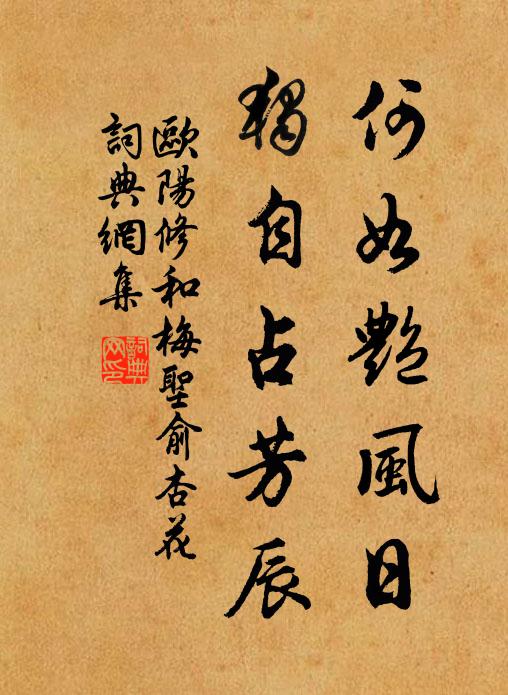 何如艷風日
獨自占芳辰
歐陽修和梅聖俞杏花
詞典網集
詞典網印